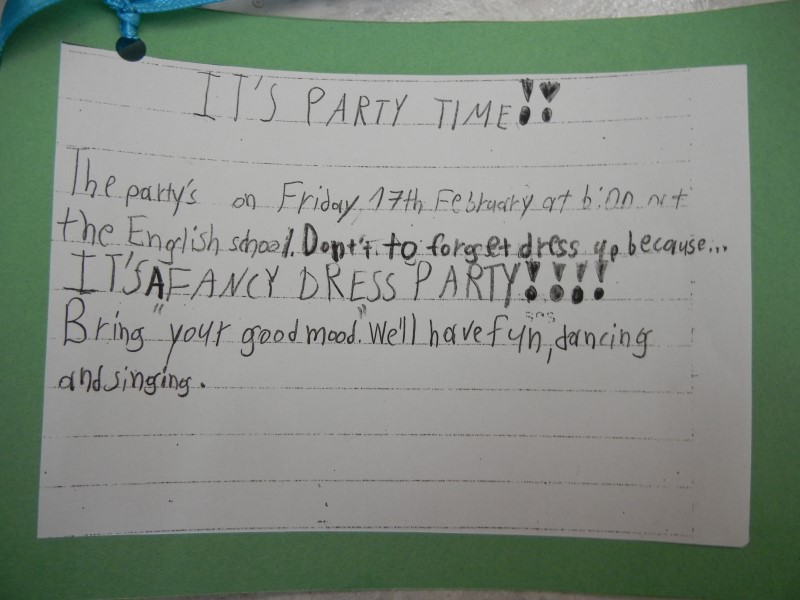 IT'S PARTY TIME!!
The party's on Friday 17th February at 6:00 at
the English school. Dont't to forget dress up because...
IT'S A FANCY DRESS PARTY!!!!
Bring "your good mood." We'll have fun, dancing
and singing.